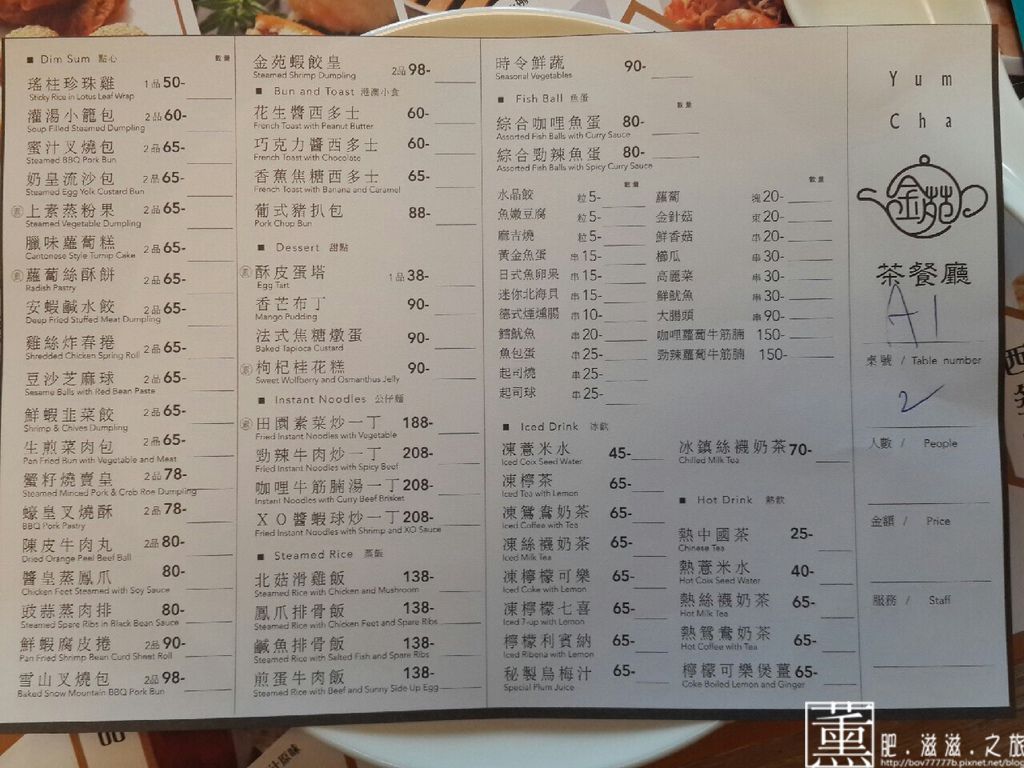 ■ Dim Sum 點心 數量
瑤柱珍珠雞 1品 50-
Sticky Rice in Lotus Leaf Wrap
灌湯小籠包 2品 60-
Soup Filled Steamed Dumpling
蜜汁叉燒包 2品 65-
Steamed BBQ Pork Bun
奶皇流沙包 2品 65-
Steamed Egg Yolk Custard Bun
素 上素蒸粉果 2品 65-
Steamed Vegetable Dumpling
臘味蘿蔔糕 2品 65-
Cantonese Style Turnip Cake
素 蘿蔔絲酥餅 2品 65-
Radish Pastry
安蝦鹹水餃 2品 65-
Deep Fried Stuffed Meat Dumpling
雞絲炸春捲 2品 65-
Shredded Chicken Spring Roll
豆沙芝麻球 2品 65-
Sesame Balls with Red Bean Paste
鮮蝦韭菜餃 2品 65-
Shrimp & Chives Dumpling
生煎菜肉包 2品 65-
Pan Fried Bun with Vegetable and Meat
蟹籽燒賣皇 2品 78-
Steamed Minced Pork & Crab Roe Dumpling
蠔皇叉燒酥 2品 78-
BBQ Pork Pastry
陳皮牛肉丸 2品 80-
Dried Orange Peel Beef Ball
醬皇蒸鳳爪 80-
Chicken Feet Steamed with Soy Sauce
豉蒜蒸肉排 80-
Steamed Spare Ribs in Black Bean Sauce
鮮蝦腐皮捲 2品 90-
Pan Fried Shrimp Bean Curd Sheet Roll
雪山叉燒包 2品 98-
Baked Snow Mountain BBQ Pork Bun
金苑蝦餃皇 2品 98-
Steamed Shrimp Dumpling
■ Bun and Toast 港澳小食
花生醬西多士 60-
French Toast with Peanut Butter
巧克力醬西多士 60-
French Toast with Chocolate
香蕉焦糖西多士 65-
French Toast with Banana and Caramel
葡式豬扒包 88-
Pork Chop Bun
■ Dessert 甜點
素 酥皮蛋塔 1品 38-
Egg Tart
香芒布丁 90-
Mango Pudding
法式焦糖燉蛋 90-
Baked Tapioca Custard
素 枸杞桂花糕 90-
Sweet Wolfberry and Osmanthus Jelly
■ Instant Noodles 公仔麵
素 田園素菜炒一丁 188-
Fried Instant Noodles with Vegetable
勁辣牛肉炒一丁 208-
Fried Instant Noodles with Spicy Beef
咖哩牛筋腩湯一丁 208-
Instant Noodles with Curry Beef Brisket
XO醬蝦球炒一丁 208-
Fried Instant Noodles with Shrimp and XO Sauce
■ Steamed Rice 蒸飯
北菇滑雞飯 138-
Steamed Rice with Chicken and Mushroom
鳳爪排骨飯 138-
Steamed Rice with Chicken Feet and Spare Ribs
鹹魚排骨飯 138-
Steamed Rice with Salted Fish and Spare Ribs
煎蛋牛肉飯 138-
Steamed Rice with Beef and Sunny Side Up Egg
時令鮮蔬 90-
Seasonal Vegetables
■ Fish Ball 魚蛋 數量
綜合咖哩魚蛋 80-
Assorted Fish Balls with Curry Sauce
綜合勁辣魚蛋 80-
Assorted Fish Balls with Spicy Curry Sauce
數量
水晶餃 粒 5-
魚嫩豆腐 粒 5-
麻吉燒 粒 5-
黃金魚蛋 串 15-
日式魚卵果 串 15-
迷你北海貝 串 15-
德式煙燻腸 串 10-
鱈魷魚 串 20-
魚包蛋 串 25-
起司燒 串 25-
起司球 串 25-
數量
蘿蔔 塊 20-
金針菇 束 20-
鮮香菇 串 20-
櫛瓜 串 30-
高麗菜 串 30-
鮮魷魚 串 30-
大腸頭 串 90-
咖哩蘿蔔牛筋腩 150-
勁辣蘿蔔牛筋腩 150-
■ Iced Drink 冰飲
凍薏米水 45-
Iced Coix Seed Water
凍檸茶 65-
Iced Tea with Lemon
凍鴛鴦奶茶 65-
Iced Coffee with Tea
凍絲襪奶茶 65-
Iced Milk Tea
凍檸檬可樂 65-
Iced Coke with Lemon
凍檸檬七喜 65-
Iced 7-up with Lemon
檸檬利賓納 65-
Iced Ribena with Lemon
秘製烏梅汁 65-
Special Plum Juice
冰鎮絲襪奶茶 70-
Chilled Milk Tea
■ Hot Drink 熱飲
熱中國茶 25-
Chinese Tea
熱薏米水 40-
Hot Coix Seed Water
熱絲襪奶茶 65-
Hot Milk Tea
熱鴛鴦奶茶 65-
Hot Coffee with Tea
檸檬可樂煲薑 65-
Coke Boiled Lemon and Ginger
Yum
Cha
金苑
茶餐廳
A1
桌號 / Table number
2
人數 / People
金額 / Price
服務 / Staff
薰 肥.滋滋.之旅
http://bov77777b.pixnet.net/blog